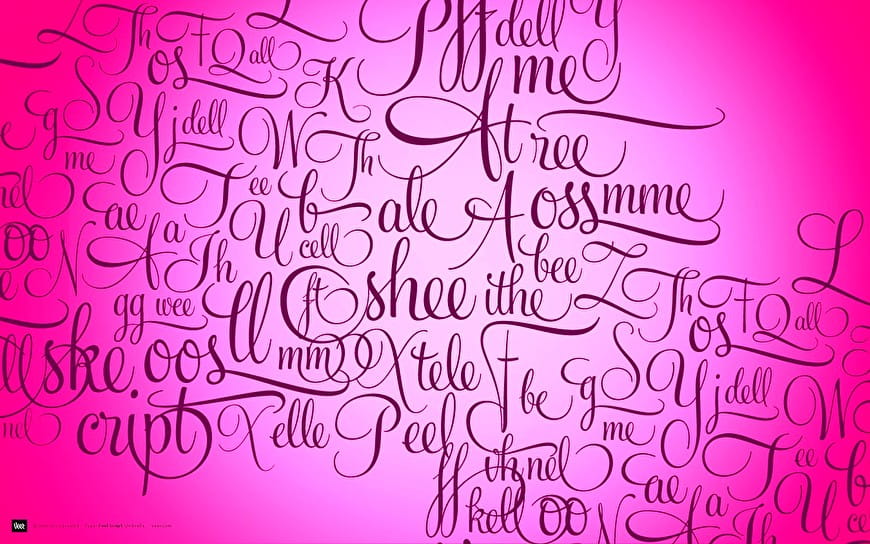 L Th F Q all P ff dell y
os K me
g S Y j dell W At ree
me Th
nel T ee b ale A oss mme
ae U cell
oo N A a Th bee Z L
gg wee ll ft shee ithe Th F Q all
ll ske. oos mm X tele F be g S os
Y j dell W
nel cript X elle P eel me
ff th nel ae T ee b
kell oo N A a Th U ce
Veer